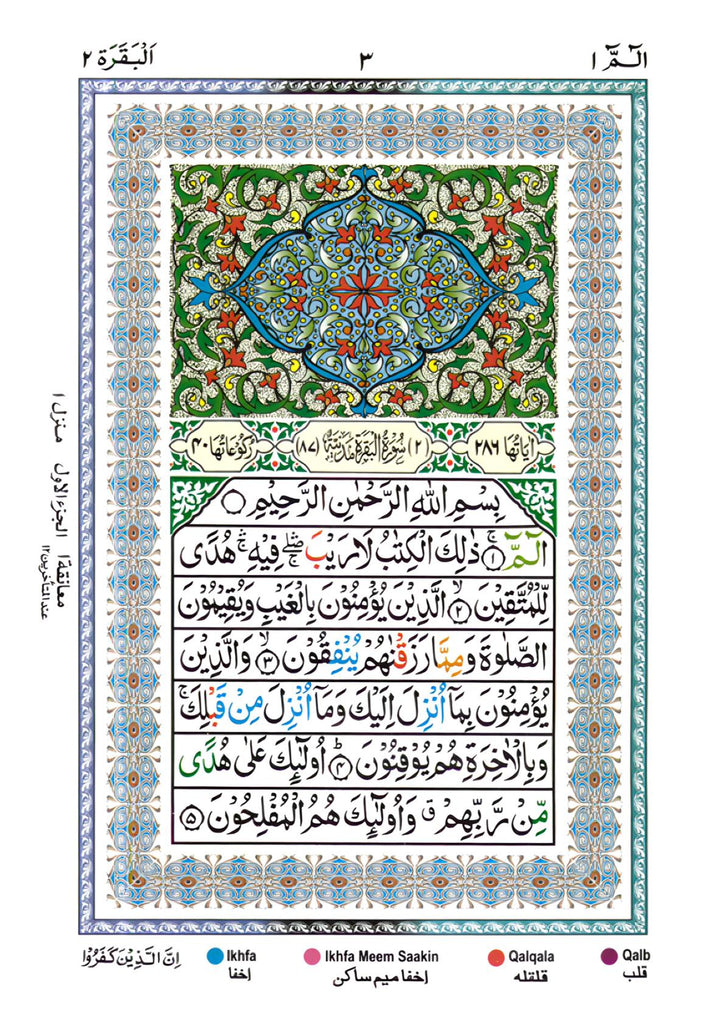 الٓمّٓ ١
٣
اَلْبَقَرَة ٢
اٰیَاتُهَا ٢٨٦
(٢) سُوْرَةُ الْبَقَرَةِ مَدَنِیَّةٌ (٨٧)
رُكُوْعَاتُهَا ٤٠
بِسْمِ اللّٰهِ الرَّحْمٰنِ الرَّحِیْمِ
الٓمّٓ ۚ﴿١﴾ ذٰلِكَ الْكِتٰبُ لَا رَیْبَ ۛۖۚ فِیْهِ ۛۚ هُدًی
لِّلْمُتَّقِیْنَ ۙ﴿٢﴾ الَّذِیْنَ یُؤْمِنُوْنَ بِالْغَیْبِ وَیُقِیْمُوْنَ
الصَّلٰوةَ وَمِمَّا رَزَقْنٰهُمْ یُنْفِقُوْنَ ۙ﴿٣﴾ وَالَّذِیْنَ
یُؤْمِنُوْنَ بِمَاۤ اُنْزِلَ اِلَیْكَ وَمَاۤ اُنْزِلَ مِنْ قَبْلِكَ ۚ
وَبِالْاٰخِرَةِ هُمْ یُوْقِنُوْنَ ؕ﴿٤﴾ اُولٰٓئِكَ عَلٰی هُدًی
مِّنْ رَّبِّهِمْ ۗ وَاُولٰٓئِكَ هُمُ الْمُفْلِحُوْنَ ﴿٥﴾
منزل ١
الجزء الاول
معانقة ١
عند المتأخرين ١٢
Qalb
قلب
Qalqala
قلقله
Ikhfa Meem Saakin
إخفا میم ساکن
Ikhfa
إخفا
اِنَّ الَّذِیْنَ كَفَرُوْا